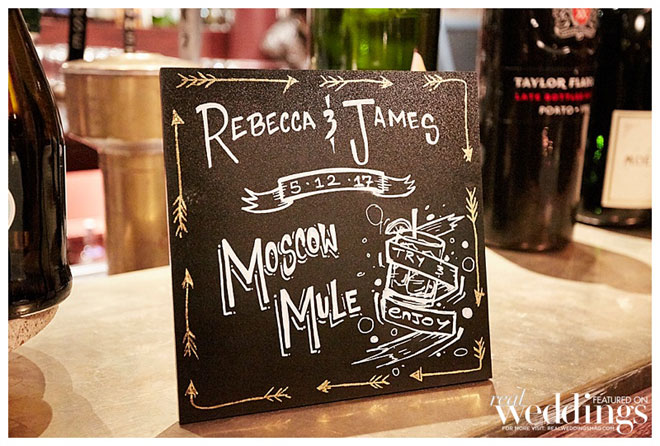 REBECCA & JAMES
5·12·17
MOSCOW
MULE
TRY
ENJOY
TAYLOR FLA
LATE BOTTLED
PORTO
MO
real weddings
FEATURED ON
FOR MORE VISIT: REALWEDDINGSMAG.COM